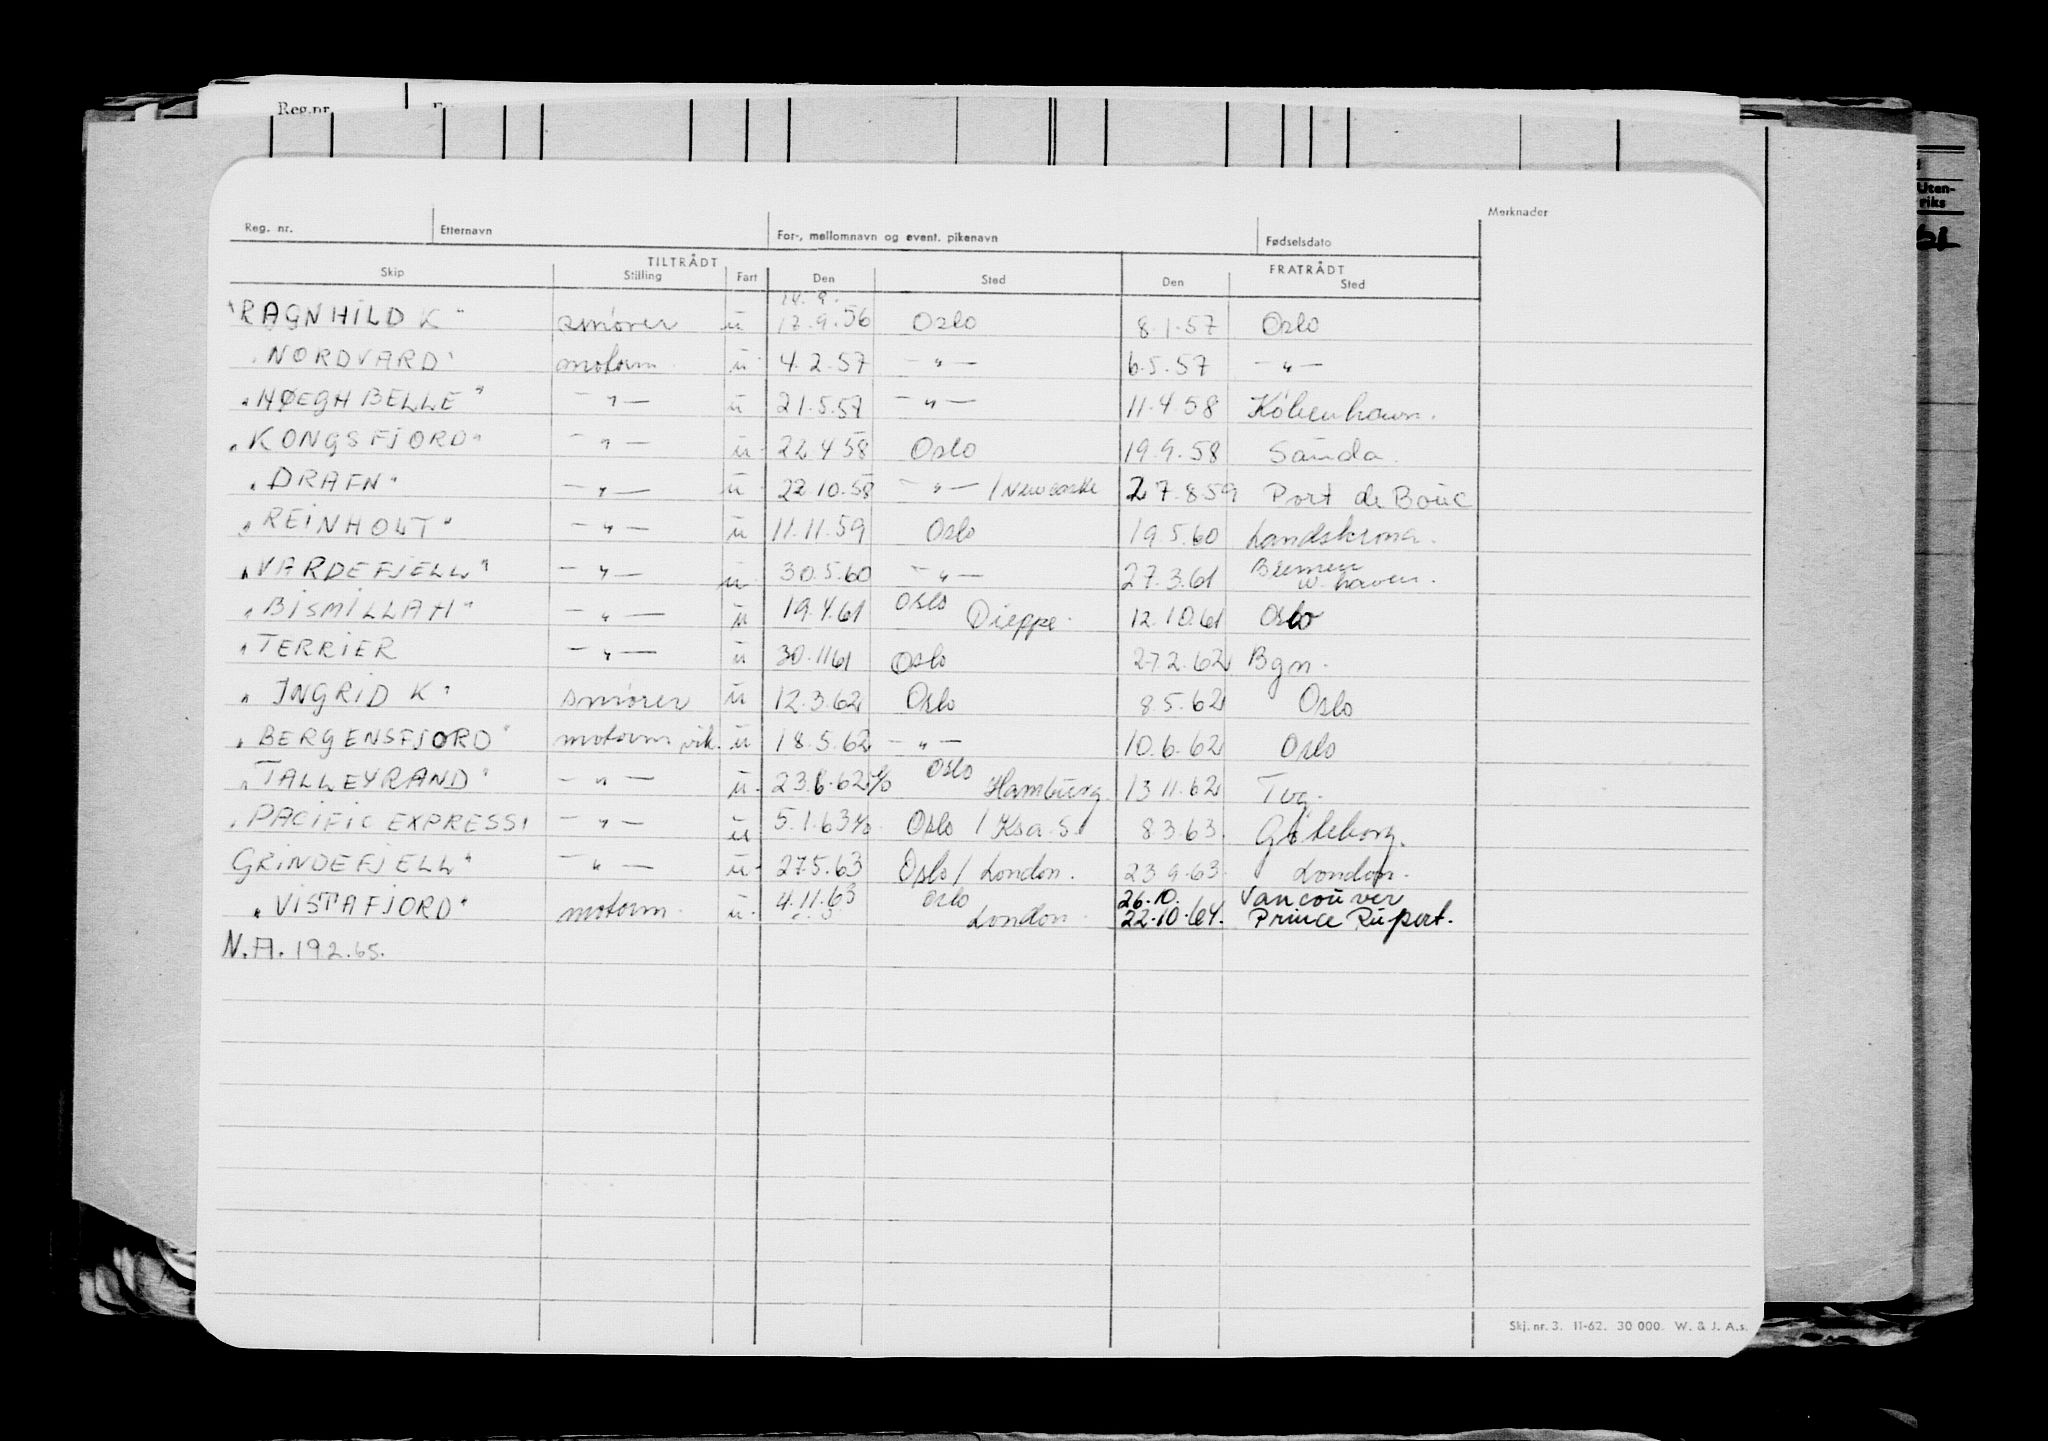 Reg.nr.
Uten-
riks
Reg. nr. Etternavn For-, mellomnavn og event. pikenavn Fødselsdato Merknader
TILTRÅDT FRATRÅDT
Skip Stilling Fart Den Sted Den Sted
14.9.
"RAGNHILD K" smører u 17.9.56 Oslo 8.1.57 Oslo
"NORDVARD" motorm. u 4.2.57 -"- 6.5.57 -"-
"HØEGH BELLE" -"- u 21.5.57 -"- 11.4.58 København.
"KONGSFJORD" -"- u 22.4.58 Oslo 19.9.58 Sauda.
"DRAFN" -"- u 22.10.58 -"- / Newcastle 27.8.59 Port de Bouc
"REINHOLT" -"- u 11.11.59 Oslo 19.5.60 Landskrona.
"VARDEFJELL" -"- u 30.5.60 -"- 27.3.61 Bremen
W. haven.
"BISMILLAH" -"- u 19.4.61 Oslo Dieppe. 12.10.61 Oslo
"TERRIER -"- u 30.11 61 Oslo 27.2.62 Bgn.
"INGRID K" smører u 12.3.62 Oslo 8.5.62 Oslo
"BERGENSFJORD" motorm. vik. u 18.5.62 -"- 10.6.62 Oslo
"TALLEYRAND" -"- u. 23.6.62 Oslo Hamburg. 13.11.62 Tbg.
"PACIFIC EXPRESS" -"- u 5.1.63 Oslo / Ksa. S. 8.3.63. Göteborg.
GRINDEFJELL" -"- u. 27.5.63 Oslo / London. 23.9.63. London.
"VISTAFJORD" motorm. u. 4.11.63 Oslo London. 26.10. Vancouver
22.10.64. Prince Rupert.
N.A. 19 2.65.
Skj. nr. 3. 11-62. 30 000. W. & J. A.s.